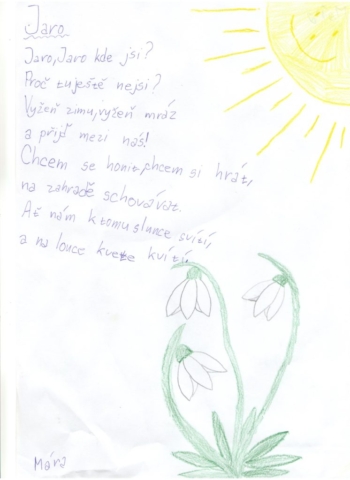 Jaro
Jaro, Jaro kde jsi?
Proč tuještě nejsi?
Vyžeň zimu,vyžeň mráz
a přijď mezi nás!
Chcem se honit,chcem si hrát,
na zahradě schovávat.
Ať nám k tomu slunce svítí,
a na louce kvete kvítí.
Mára